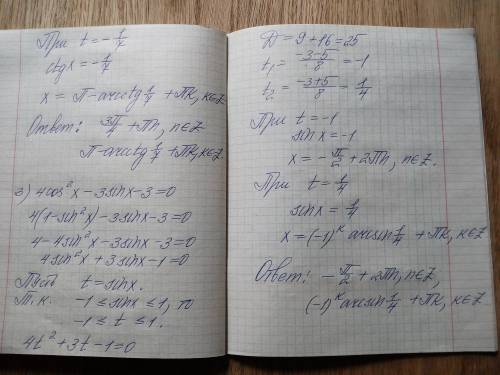 При t = -1/7
ctgx = -1/7
x = π - arcctg 1/7 + πk, k∈Z
Ответ: 3π/4 + πn, n∈Z
π - arcctg 1/7 + πk, k∈Z.
г) 4cos²x - 3sinx - 3 = 0
4(1 - sin²x) - 3sinx - 3 = 0
4 - 4sin²x - 3sinx - 3 = 0
4sin²x + 3sinx - 1 = 0
Пусть t = sinx.
Т.к. -1 ≤ sinx ≤ 1, то
-1 ≤ t ≤ 1.
4t² + 3t - 1 = 0
D = 9 + 16 = 25
t₁ = (-3-5)/8 = -1
t₂ = (-3+5)/8 = 1/4
При t = -1
sinx = -1
x = -π/2 + 2πn, n∈Z.
При t = 1/4
sinx = 1/4
x = (-1)ᵏ arcsin 1/4 + πk, k∈Z
Ответ: -π/2 + 2πn, n∈Z,
(-1)ᵏ arcsin 1/4 + πk, k∈Z